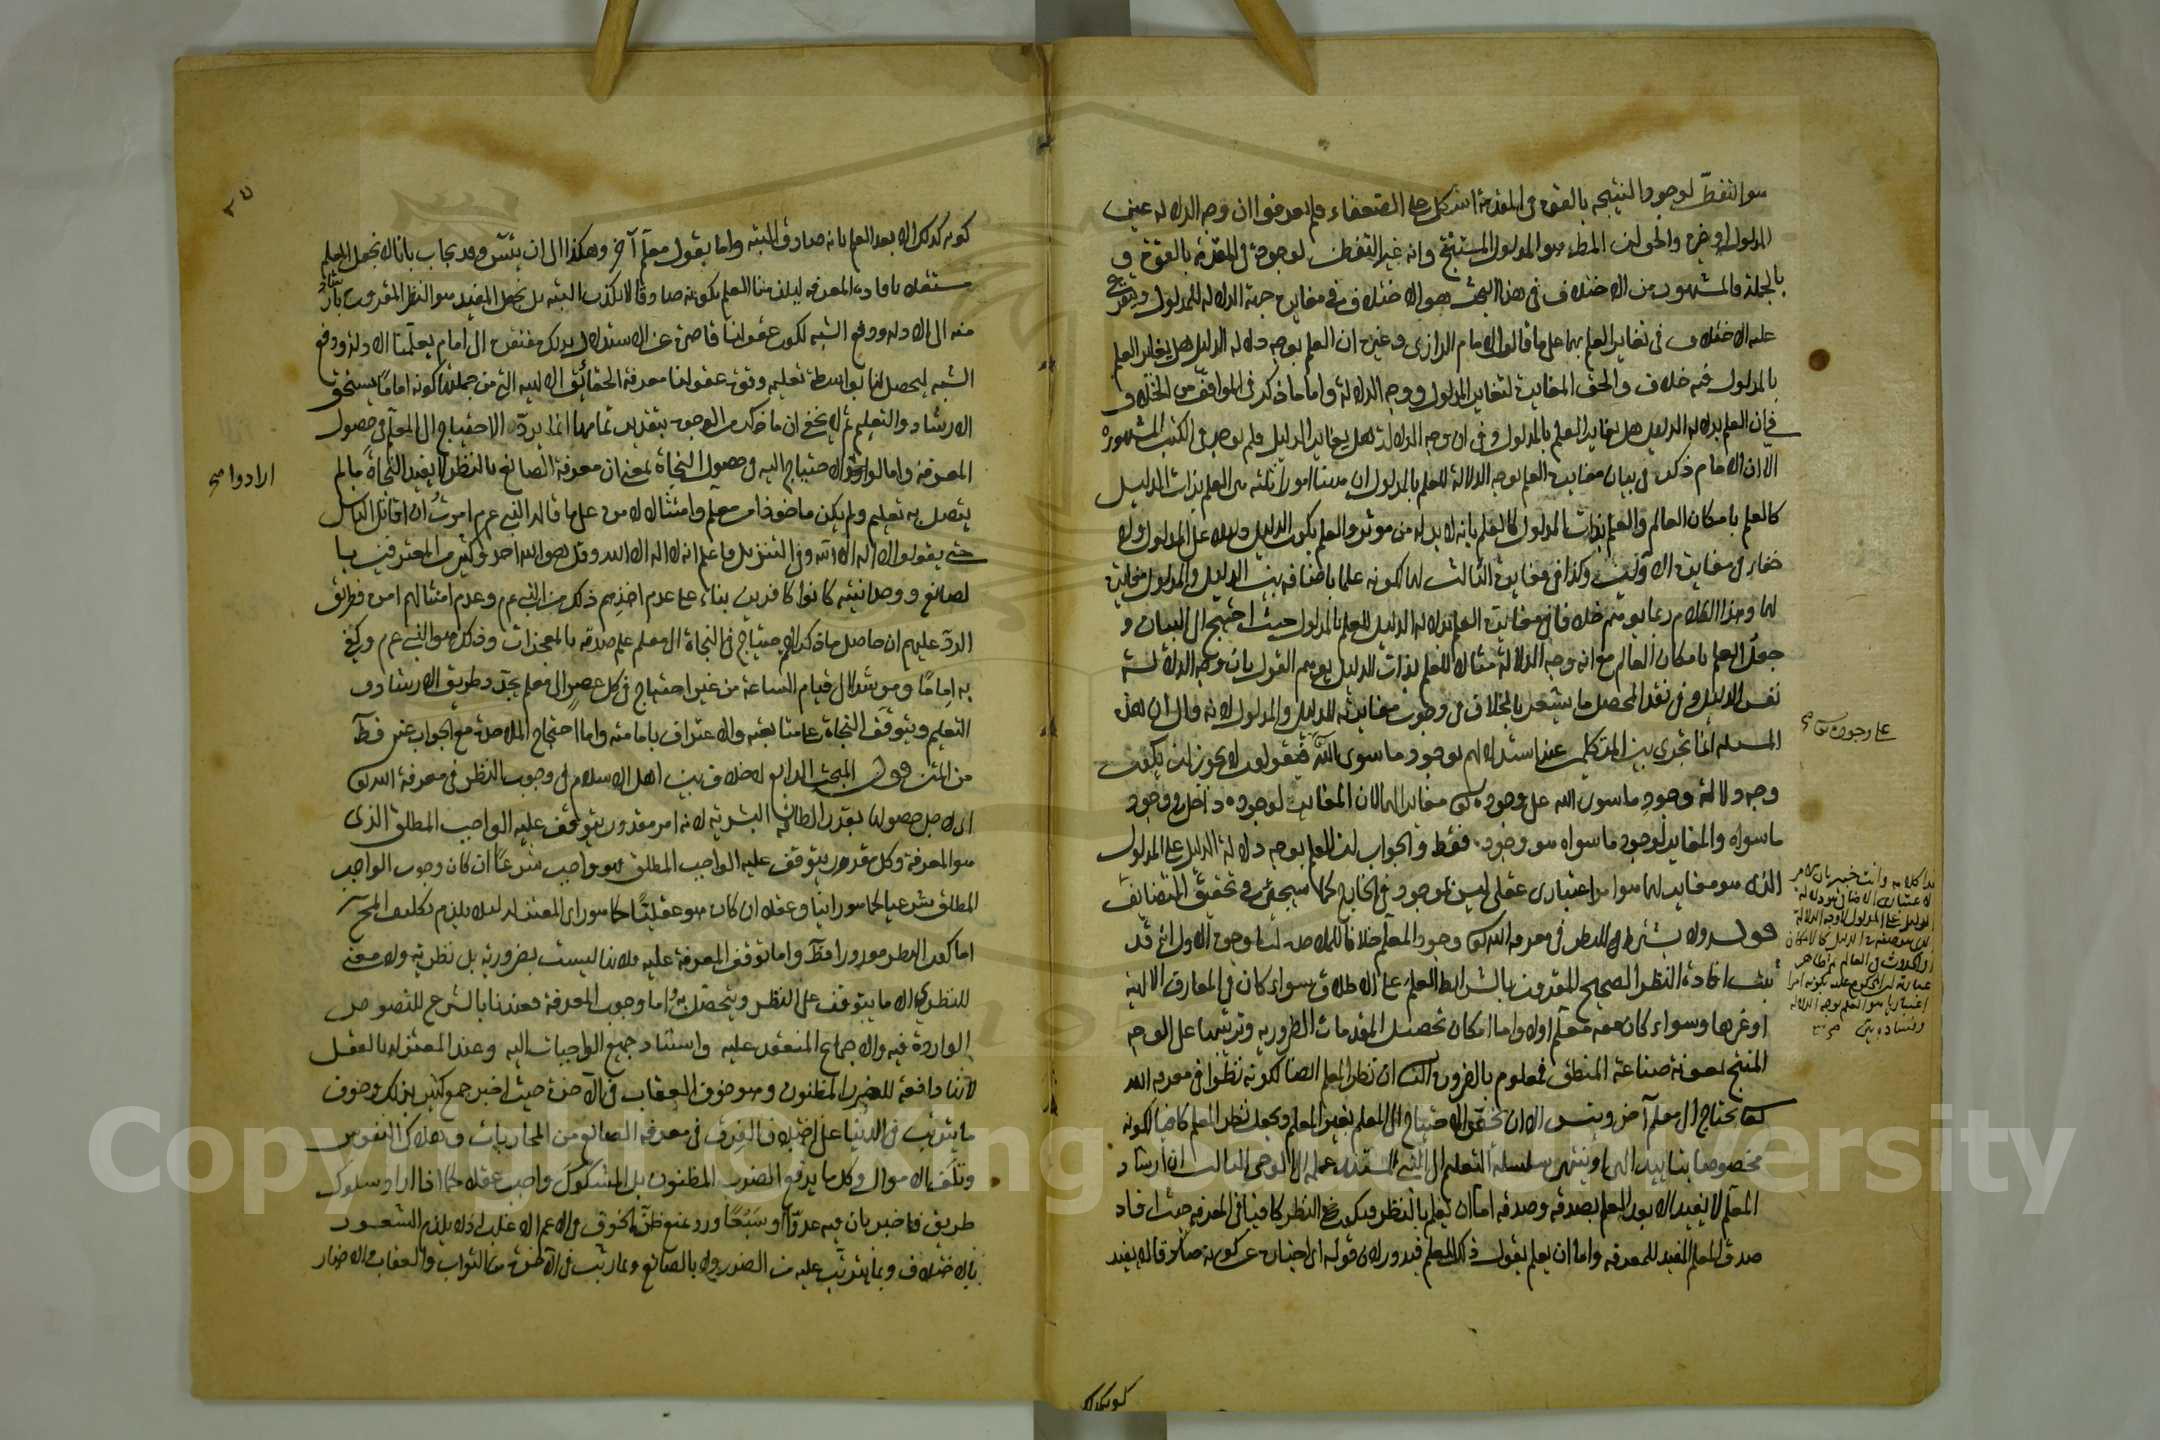 هو التفطن لوجود النتيجة بالقوة في المقدمة اشكل على الضعفاء فلم يعرفوا ان وجه الدلالة عين
المدلول او غيره والحق ان المط هو المدلول المستنتج وانه غير التفطن لوجوده في المقدمة بالقوة و
بالجملة فالمشهور من الاختلاف في هذا البحث هو الاختلاف في مغايرة جهة الدلالة للمدلول ويتفرع
عليه الاختلاف في تغاير العلم بهما على ما قال الامام الرازي وغيره ان العلم بوجه دلالة الدليل هل يغاير العلم
بالمدلول فيه خلاف والحق المغايرة لتغاير المدلول ووجه الدلالة واما ما ذكر في المواقف من الخلاف
في ان العلم بدلالة الدليل هل يغاير العلم بالمدلول وفي ان وجه الدلالة هل يغاير الدليل فلم يوجد في الكتب المشهورة
الا ان الامام ذكر في بيان مغايرة العلم بوجه الدلالة للعلم بالمدلول ان هنا امورا ثلثة هي العلم بذات الدليل
كالعلم بامكان العالم والعلم بذات المدلول كالعلم بانه لا بد له من موثر والعلم بكون الدليل دليلا على المدلول ولا
خفاء في مغايرة الاولين وكذا في مغايرة الثالث لهما لكونه علما باضافة بين الدليل والمدلول مغايرة
لهما وهذا الكلام ربما يوهم خلافا في مغايرة العلم بدلالة الدليل للعلم بالمدلول حيث احتيج الى البيان و
جعل العلم بامكان العالم مع انه وجه الدلالة مثالا للعلم بذات الدليل يوهم القول بان وجه الدلالة
نفس الدليل وفي نقد المحصل ما يشعر بالخلاف في وجوب مغايرته للدليل والمدلول لانه قال ان هذه
المسئلة انما تجري بين المتكلمين عند استدلالهم بوجود ما سوى الله فيقولون لا يجوز ان يكون
وجه دلالة وجود ما سوى الله على وجوده تعالى مغايرا لهما لان المغاير لوجوده داخل في وجود
ما سواه والمغاير لوجود ما سواه هو وجوده فقط والجواب ان العلم بوجه دلالة الدليل على المدلول
الذي هو مغاير لهما هو امر اعتباري عقلي ليس بموجود في الخارج كما سيجئ في تحقيق التضايف
قوله ولا يشترط للنظر في معرفة الله تعالى وجود المعلم خلافا للملاحدة لنا وجوه الاول انه قد
ثبت افادة النظر الصحيح المقرون بالشرايط العلم على الاطلاق سواء كان في المعارف الالهية
او غيرها وسواء كان معه معلم اولا واما امكان تحصيل المقدمات الضرورية وترتيبها على الوجه
المنتج بمعونة صناعة المنطق فمعلوم بالضرورة الثاني ان نظر المعلم ايضا لكونه نظرا في معرفة الله
تعالى يحتاج الى معلم آخر ويتسلسل الا ان يخص الاحتياج الى المعلم بغير المعلم ويجعل نظر المعلم كافيا لكونه
مخصوصا بتاييد الهي او ينتهي سلسلة التعليم الى النبي المستند علمه الى الوحي الثالث ان ارشاد
المعلم لا يفيد الا بعد العلم بصدقه وصدقه اما ان يعلم بالنظر فيكون النظر كافيا في المعرفة حيث افاد
صدق المعلم المفيد للمعرفة واما ان يعلم بقول ذلك المعلم فيدور لان قوله اي اخباره عن كونه صادقا لا يفيد
على وجوده تعالى صح
كونه كذلك الا بعد العلم بانه صادق البتة واما بقول معلم آخر وهكذا الى ان يتسلسل وقد يجاب بانا لا نجعل المعلم
مستقلا بافادة المعرفة ليلزمنا العلم بكونه صادقا لا يكذب البتة بل نجعل المفيد هو النظر المقرون بارشاد
منه الى الادلة ودفع الشبه لكون عقولنا قاصرة عن الاستقلال بذلك مفتقرة الى امام يعلمنا الادلة ودفع
الشبه ليحصل لنا بواسطة تعليمه وقوة عقولنا معرفة الحقائق الالهية التي من جملتها كونه اماما يستحق
الارشاد والتعليم ثم لا يخفى ان ما ذكر من الوجوه بتقدير تمامها انما يرد الاحتياج الى المعلم في حصول
المعرفة واما لو ارادوا الاحتياج اليه في حصول النجاة بمعنى ان معرفة الصانع بالنظر لا يفيد النجاة ما لم
يتصل به تعليم ولم يكن ماخوذا من معلم وامتثالا لامره على ما قال النبي عم امرت ان اقاتل الناس
حتى يقولوا لا اله الا الله وفي التنزيل فاعلم انه لا اله الا الله وقل هو الله احد وكثير من المعترفين با
لصانع ووحدانيته كانوا كافرين بناء على عدم اخذهم ذلك من النبي عم وعدم امتثالهم امره فطريق
الرد عليهم ان حاصل ما ذكر الاحتياج في النجاة الى معلم علم صدقه بالمعجزات وذلك هو النبي عم وكفى
به اماما ومرشدا الى قيام الساعة من غير احتياج في كل عصر الى معلم يجدد طريق الارشاد و
التعليم ويتوقف النجاة على متابعته والاعتراف بامامته واما احتجاج الملاحدة مع الجواب عنه فظ
من المتن قوله المبحث الرابع لا خلاف بين اهل الاسلام في وجوب النظر في معرفة الله تعالى
اي لاجل حصولها بقدر الطاقة البشرية لانه امر مقدور يتوقف عليه الواجب المطلق الذي
هو المعرفة وكل مقدور يتوقف عليه الواجب المطلق فهو واجب شرعا ان كان وجوب الواجب
المطلق شرعيا كما هو راينا وعقلا ان كان هو عقليا كما هو راي المعتزلة ليلا يلزم تكليف المحال
اما كون النظر مقدورا فظ واما توقف المعرفة عليه فلانها ليست بضرورية بل نظرية ولا معنى
للنظري الا ما يتوقف على النظر ويتحصل به واما وجوب المعرفة فعندنا بالشرع للنصوص
الواردة فيه والاجماع المنعقد عليه واستناد جميع الواجبات اليه وعند المعتزلة بالعقل
لانها دافعة للضرر المظنون وهو خوف العقاب في الآخرة حيث اخبر جمع كثير بذلك وخوف
ما يترتب في الدنيا على اختلاف الفرق في معرفة الصانع من المحاربات وهلاك النفوس
وتلف الاموال وكل ما يدفع الضرر المظنون بل المشكوك واجب عقلا كما اذا اراد سلوك
طريق فاخبر بان فيه عدوا او سبعا ورد بمنع ظن الخوف في الاعم الاغلب اذ لا يلزم الشعور
بالاختلاف وبما يترتب عليه من الضرر ولا بالصانع وبما رتب في الآخرة من الثواب والعقاب والاخبار
ارادوا صح
Copyright © King Saud University